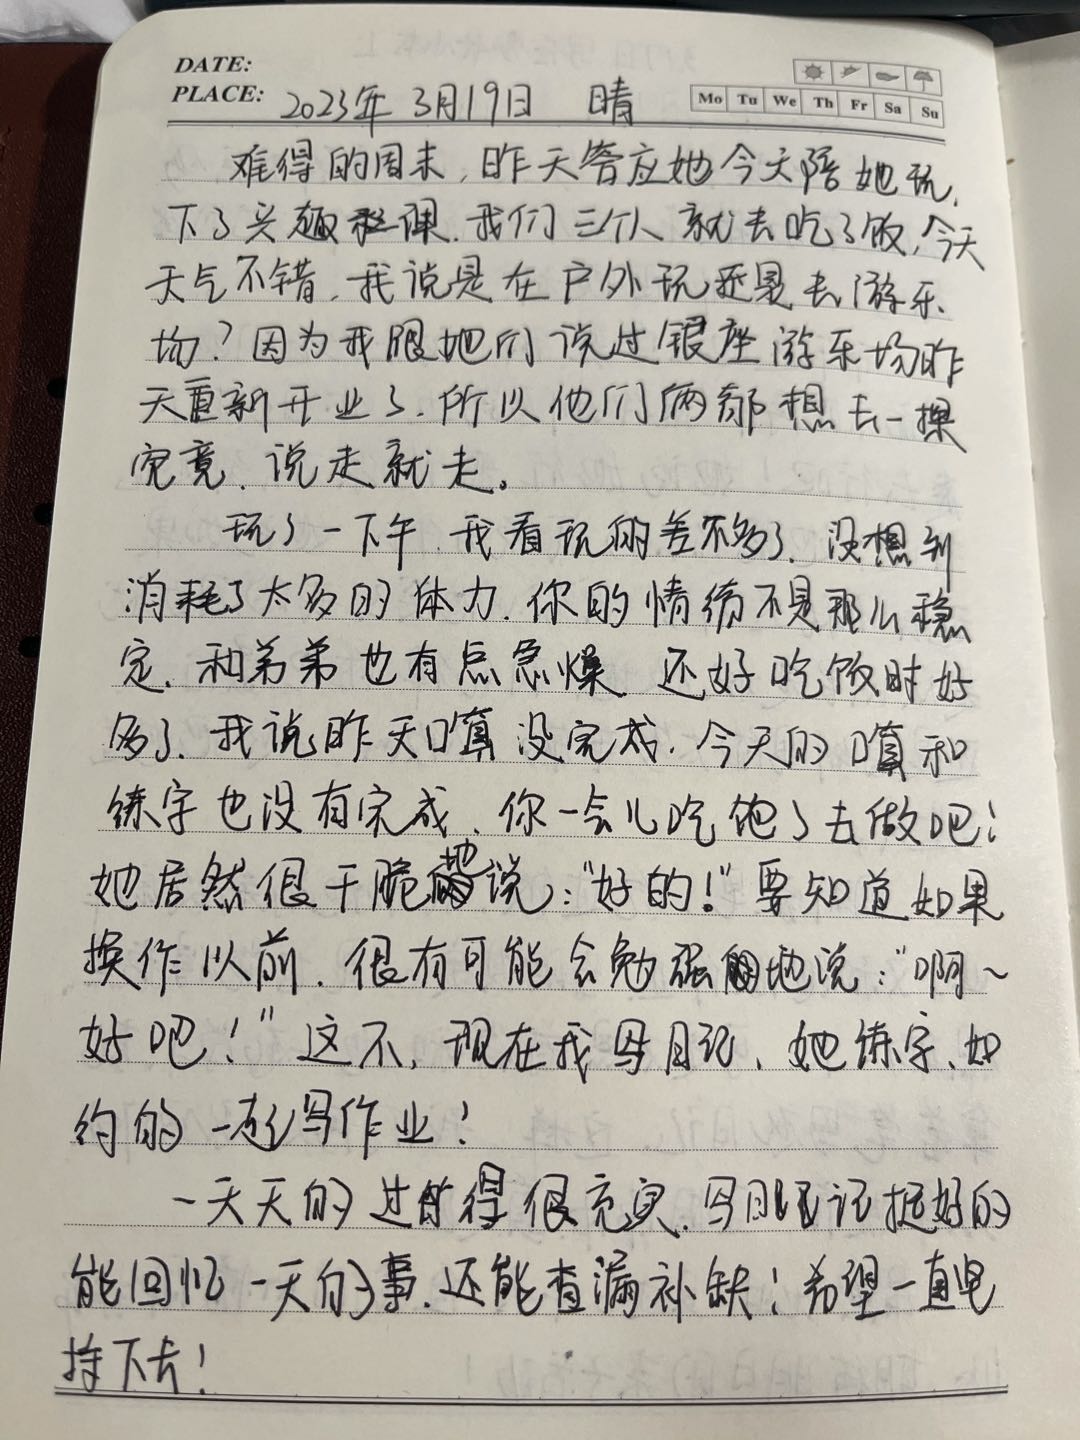 DATE:
PLACE: 2023年 3月19日 晴
Mo Tu We Th Fr Sa Su
难得的周末,昨天答应她今天陪她玩,
下了兴趣课,我们三个人就去吃了饭,今天
天气不错,我说是在户外玩还是去游乐
场?因为我跟她们说过银座游乐场昨
天重新开业了.所以他们俩都想去一探
究竟,说走就走。
玩了一下午,我看玩的差不多了,没想到
消耗了太多的体力,你的情绪不是那么稳
定,和弟弟也有点急燥,还好吃饭时好
多了,我说昨天口算没完成,今天的口算和
练字也没有完成,你一会儿吃饱了去做吧!
她居然很干脆地说:“好的!”要知道如果
换作以前,很有可能会勉强地说:“啊~
好吧!”这不,现在我写日记,她练字,如
约的一起写作业!
一天天的过得很充实,写日记挺好的
能回忆一天的事,还能查漏补缺!希望一直坚
持下去!